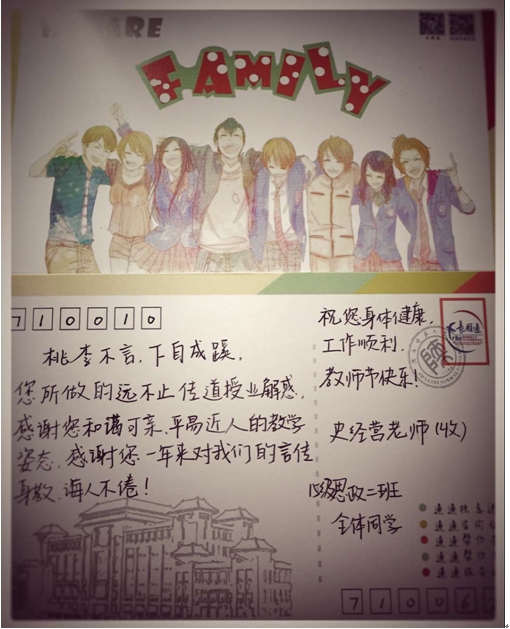 ARE
FAMILY
710010
桃李不言，下自成蹊，
您所做的远不止传道授业解惑，
感谢您和蔼可亲、平易近人的教学
姿态，感谢您一年来对我们的言传
身教、诲人不倦！
祝您身体健康，
工作顺利，
教师节快乐！
史经营老师（收）
级思政二班
全体同学
71006